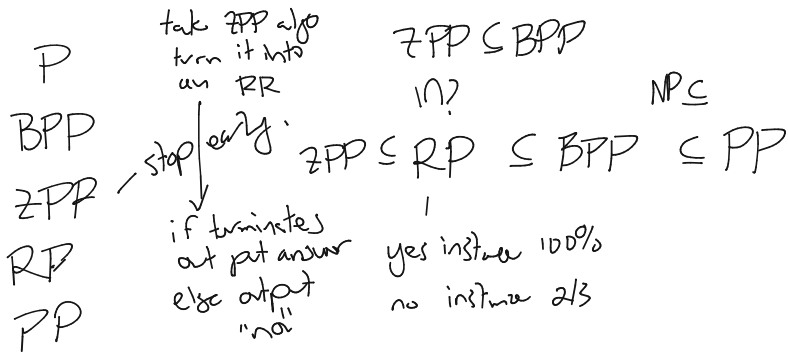 P
BPP
ZPP
RP
PP
take ZPP algo
turn it into
an RR
stop early.
if terminates
out put answer
else output
"no"
ZPP ⊆ BPP
in?
NP ⊆
ZPP ⊆ RP ⊆ BPP ⊆ PP
yes instance 100%
no instance 2/3